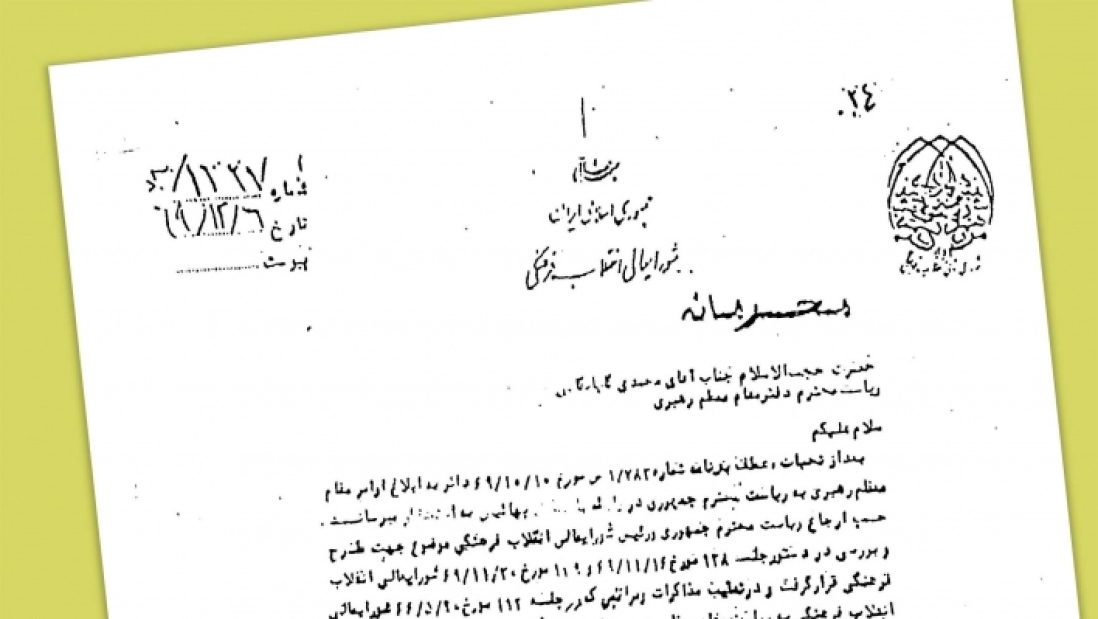 ۰۲۴
بسمه تعالی
جمهوری اسلامی ایران
شورایعالی انقلاب فرهنگی
شماره ۱۳۲۷/
تاریخ ۶۹/۱۲/۶
پیوست
محرمانه
حضرت حجت الاسلام جناب آقای محمدی گلپایگانی
ریاست محترم دفتر مقام معظم رهبری
سلام علیکم
بعد از تحیات و عطف به نامه شماره ۱/۷۸۳ س مورخ ۶۹/۱۰/۱۰ دائر به ابلاغ اوامر مقام
معظم رهبری به ریاست محترم جمهوری در رابطه با بهائیان به استحضار میرسانیم
حسب ارجاع ریاست محترم جمهوری ورئیس شورایعالی انقلاب فرهنگی موضوع جهت طرح
و بررسی در دستور جلسه ۱۲۸ مورخ ۶۹/۱۱/۱۶ و ۱۱۹ مورخ ۶۹/۱۱/۳۰ شورایعالی انقلاب
فرهنگی قرار گرفت و در تعقیب مذاکرات ومراتبی که در جلسه ۱۱۲ مورخ ۶۶/۵/۲۰ شورایعالی
انقلاب فرهنگی